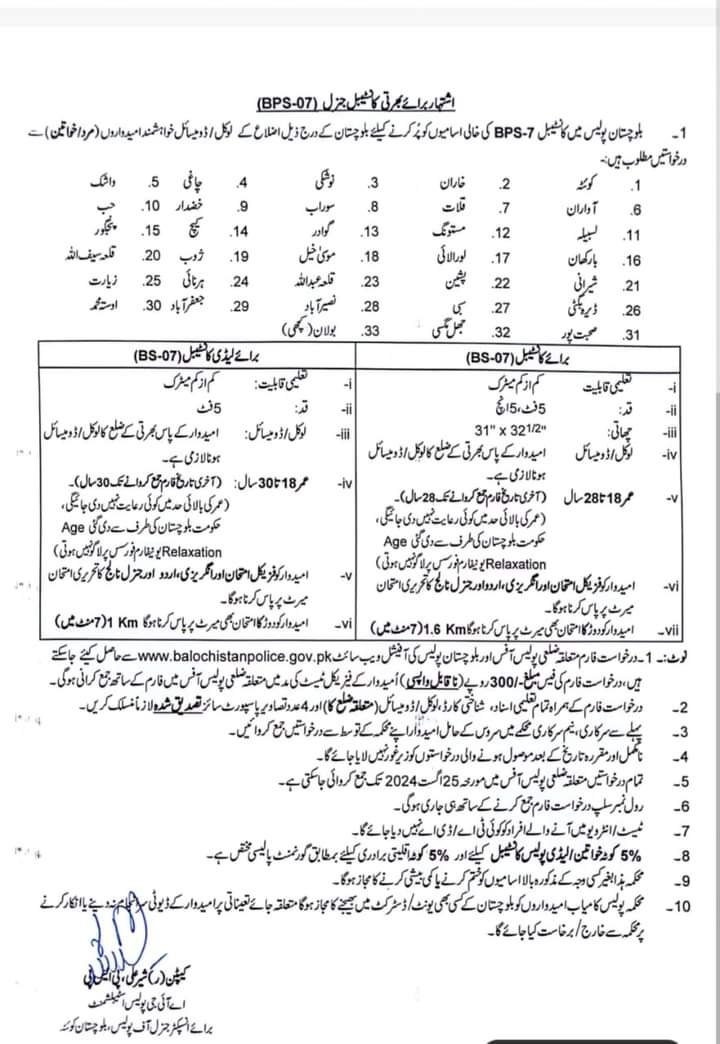 اشتہار برائے بھرتی کانسٹیبل جنرل (BPS-07)
1۔ بلوچستان پولیس میں کانسٹیبل BPS-7 کی خالی اسامیوں کو پُر کرنے کیلئے بلوچستان کے درج ذیل اضلاع کے لوکل/ڈومیسائل خواہشمند امیدواروں (مرد/خواتین) سے
درخواستیں مطلوب ہیں:-
1. کوئٹہ 2. خاران 3. نوشکی 4. چاغی 5. واشک
6. آواران 7. قلات 8. سوراب 9. خضدار 10. حب
11. لسبیلہ 12. مستونگ 13. گوادر 14. کیچ 15. پنجگور
16. بارکھان 17. لورالائی 18. موسیٰ خیل 19. ژوب 20. قلعہ سیف اللہ
21. شیرانی 22. پشین 23. قلعہ عبداللہ 24. ہرنائی 25. زیارت
26. ڈیرہ بگٹی 27. سبی 28. نصیر آباد 29. جعفر آباد 30. اوستہ محمد
31. صحبت پور 32. جھل مگسی 33. بولان (کچھی)
برائے کانسٹیبل (BS-07)
i- تعلیمی قابلیت کم از کم میٹرک
ii- قد: 5فٹ،5انچ
iii- چھاتی: 31" x 32 1/2"
iv- لوکل/ڈومیسائل امیدوار کے پاس بھرتی کے ضلع کا لوکل/ڈومیسائل
ہونا لازمی ہے۔
v- عمر 18 تا 28 سال (آخری تاریخ فارم جمع کروانے تک 28 سال)۔
(عمر کی بالائی حد میں کوئی رعایت نہیں دی جائیگی،
حکومت بلوچستان کی طرف سے دی گئی Age
Relaxation یونیفارم فورسس پر لاگو نہیں ہوتی)
vi- امیدوار کو فزیکل امتحان اور انگریزی، اردو اور جنرل نالج کا تحریری امتحان
میرٹ پر پاس کرنا ہوگا۔
vii- امیدوار کو دوڑ کا امتحان بھی میرٹ پر پاس کرنا ہوگا 1.6 Km (7 منٹ میں)
برائے لیڈی کانسٹیبل (BS-07)
i- تعلیمی قابلیت: کم از کم میٹرک
ii- قد: 5فٹ
iii- لوکل/ڈومیسائل: امیدوار کے پاس بھرتی کے ضلع کا لوکل/ڈومیسائل
ہونا لازمی ہے۔
iv- عمر 18 تا 30 سال: (آخری تاریخ فارم جمع کروانے تک 30 سال)۔
(عمر کی بالائی حد میں کوئی رعایت نہیں دی جائیگی،
حکومت بلوچستان کی طرف سے دی گئی Age
Relaxation یونیفارم فورسس پر لاگو نہیں ہوتی)
v- امیدوار کو فزیکل امتحان اور انگریزی، اردو اور جنرل نالج کا تحریری امتحان
میرٹ پر پاس کرنا ہوگا۔
vi- امیدوار کو دوڑ کا امتحان بھی میرٹ پر پاس کرنا ہوگا 1 Km (7 منٹ میں)
نوٹ:۔ 1۔ درخواست فارم متعلقہ ضلعی پولیس آفس اور بلوچستان پولیس کی آفیشل ویب سائٹ www.balochistanpolice.gov.pk سے حاصل کیئے جاسکتے
ہیں، درخواست فارم کی فیس مبلغ -/300 روپے (ناقابل واپسی) اُمیدوار کے فیزیکل ٹیسٹ کی مد میں متعلقہ ضلعی پولیس آفس میں فارم کے ساتھ جمع کرانی ہوگی۔
2۔ درخواست فارم کے ہمراہ تمام تعلیمی اسناد، شناختی کارڈ، لوکل/ڈومیسائل (متعلقہ ضلع کا) اور 4 عدد تصاویر پاسپورٹ سائز تصدیق شدہ لازماً منسلک کریں۔
3۔ پہلے سے سرکاری، نیم سرکاری محکمے میں سروس کے حامل امیدوار اپنے محکمہ کے توسط سے درخواستیں جمع کروائیں۔
4۔ نامکمل اور مقررہ تاریخ کے بعد موصول ہونے والی درخواستوں کو زیر غور نہیں لایا جائے گا۔
5۔ تمام درخواستیں متعلقہ ضلعی پولیس آفس میں مورخہ 25 اگست 2024 تک جمع کروائی جاسکتی ہے۔
6۔ رول نمبر سلپ درخواست فارم جمع کرنے کے ساتھ ہی جاری ہوگی۔
7۔ ٹیسٹ/انٹرویو میں آنے والے افراد کو کوئی ٹی اے/ڈی اے نہیں دیا جائے گا۔
8۔ 5% کوٹہ خواتین/لیڈی پولیس کانسٹیبل کیلئے اور 5% کوٹہ اقلیتی برادری کیلئے بمطابق گورنمنٹ پالیسی مختص ہے۔
9۔ محکمہ ہذا بغیر کسی وجہ کے مذکورہ بالا اسامیوں کو ختم کرنے یا کمی بیشی کرنے کا مجاز ہوگا۔
10۔ محکمہ پولیس کامیاب امیدواروں کو بلوچستان کے کسی بھی یونٹ/ڈسٹرکٹ میں بھیجنے کا مجاز ہوگا متعلقہ جائے تعیناتی پر امیدوار کے ڈیوٹی نہ دینے یا انکار کرنے
پر محکمہ سے خارج/برخاست کیا جائے گا۔
کیپٹن (ر) شیر علی، پی ایس پی
اے آئی جی پولیس اسٹیبلشمنٹ
برائے انسپکٹر جنرل آف پولیس، بلوچستان کوئٹہ